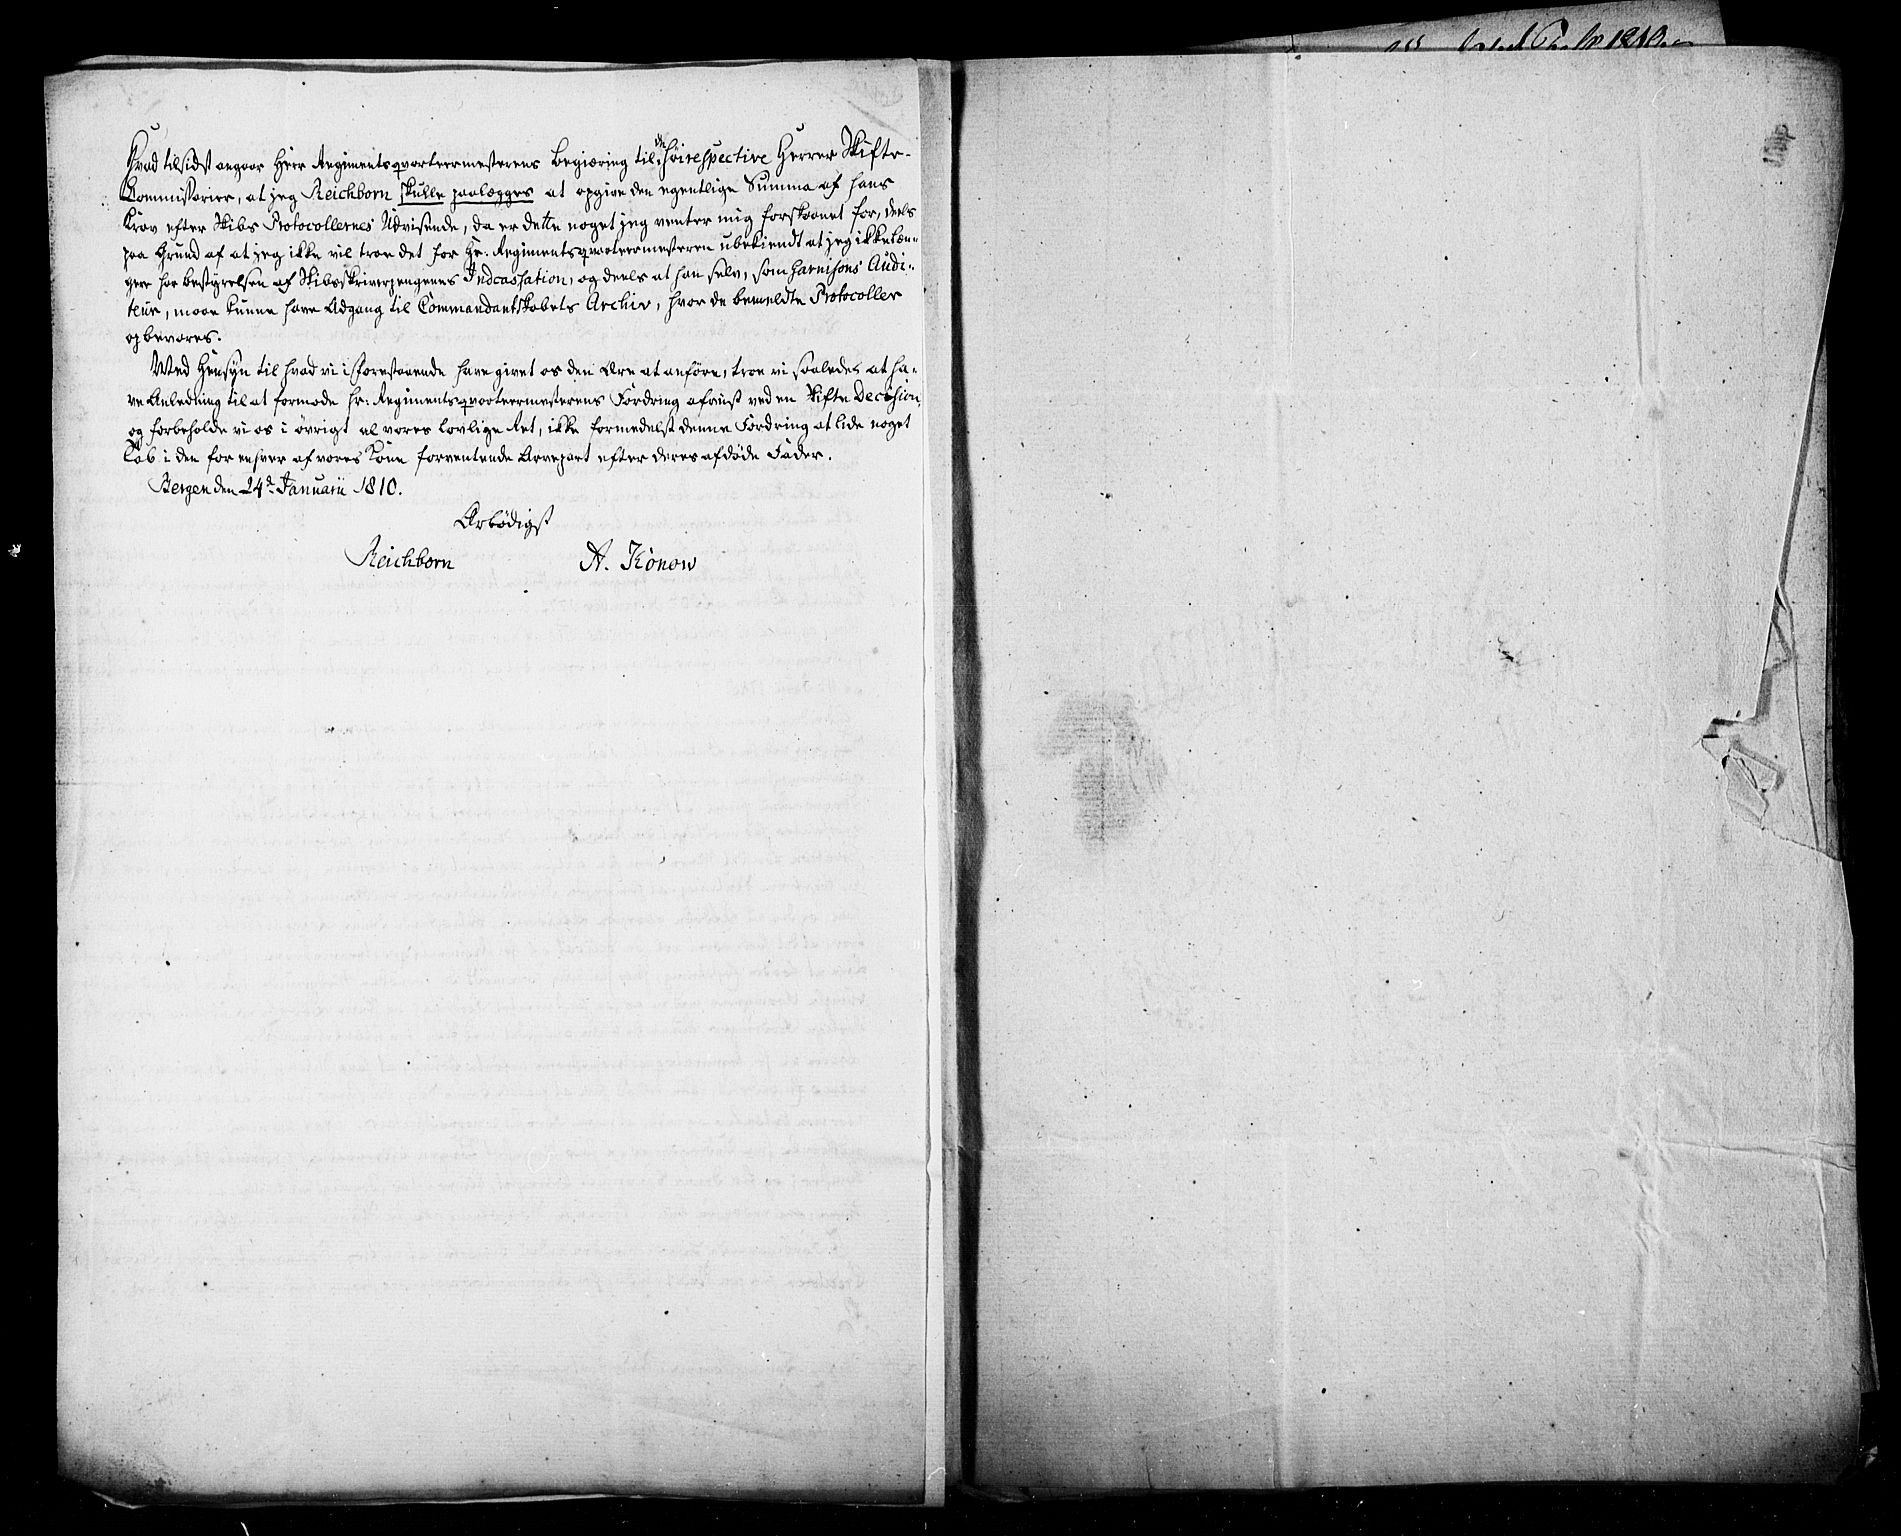 Hvad tilsidst angaar Herr Regimentsqvarteermesterens Begiæring til de Höirespective Herrer Skifte-
Commissarier, at jeg Reichborn skulle paalægges at opgive den egentlige Summa af hans
Krav efter Skibs Protocollernes Udvisende, da er dette noget jeg venter mig forskaanet for, deels
paa Grund af at jeg ikke vil troe det for Hr: Regimentsqvarteermesteren ubekiendt at jeg ikke læn-
gere har bestyrelsen af Skibsskriverpengenes Indcassation, og deels at han selv, som Garnisons Audi-
teur, maae kunne have Adgang til Commandantskabets Archiv, hvor de bemeldte Protocoller
opbevares.
Med Hensyn til hvad vi i forestaaende have givet os den Ære at anföre, troe vi saaledes at ha-
ve Anledning til at formode Hr: Regimentsqvarteermesterens Fordring afviist ved en Skifte Decision,
og forbeholde vi os i övrigt al vores lovlige Ret, ikke formedelst denne Fordring at lide noget
Tab i den for enhver af vores Kone forventende Arvepart efter deres afdöde Fader.
Bergen den 24de Januarii 1810.
Ærbödigst
Reichborn A. Konow
1810